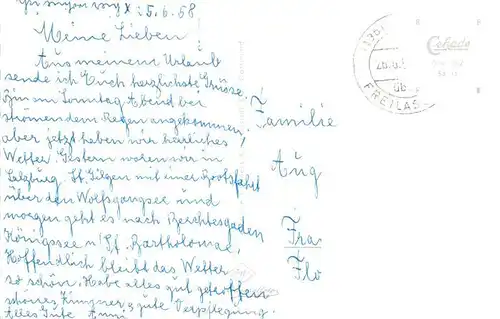 5.6.58
Meine Lieben!
Aus meinem Urlaub
sende ich Euch herzlichste Grüsse.
Bin am Sonntag Abend bei
strömendem Regen angekommen,
aber jetzt haben wir herrliches
Wetter. Gestern waren wir in
Salzburg, St. Gilgen mit einer Bootsfahrt
über den Wolfgangsee und
morgen geht es nach Berchtesgaden
Königssee u. St. Bartholomae,
Hoffendlich bleibt das Wetter
so schön. Habe alles gut getroffen
schönes Zimmer & gute Verpflegung.
Alles Gute Anni
Familie
Aug
Fra
Flo
FREILAS
Cekade